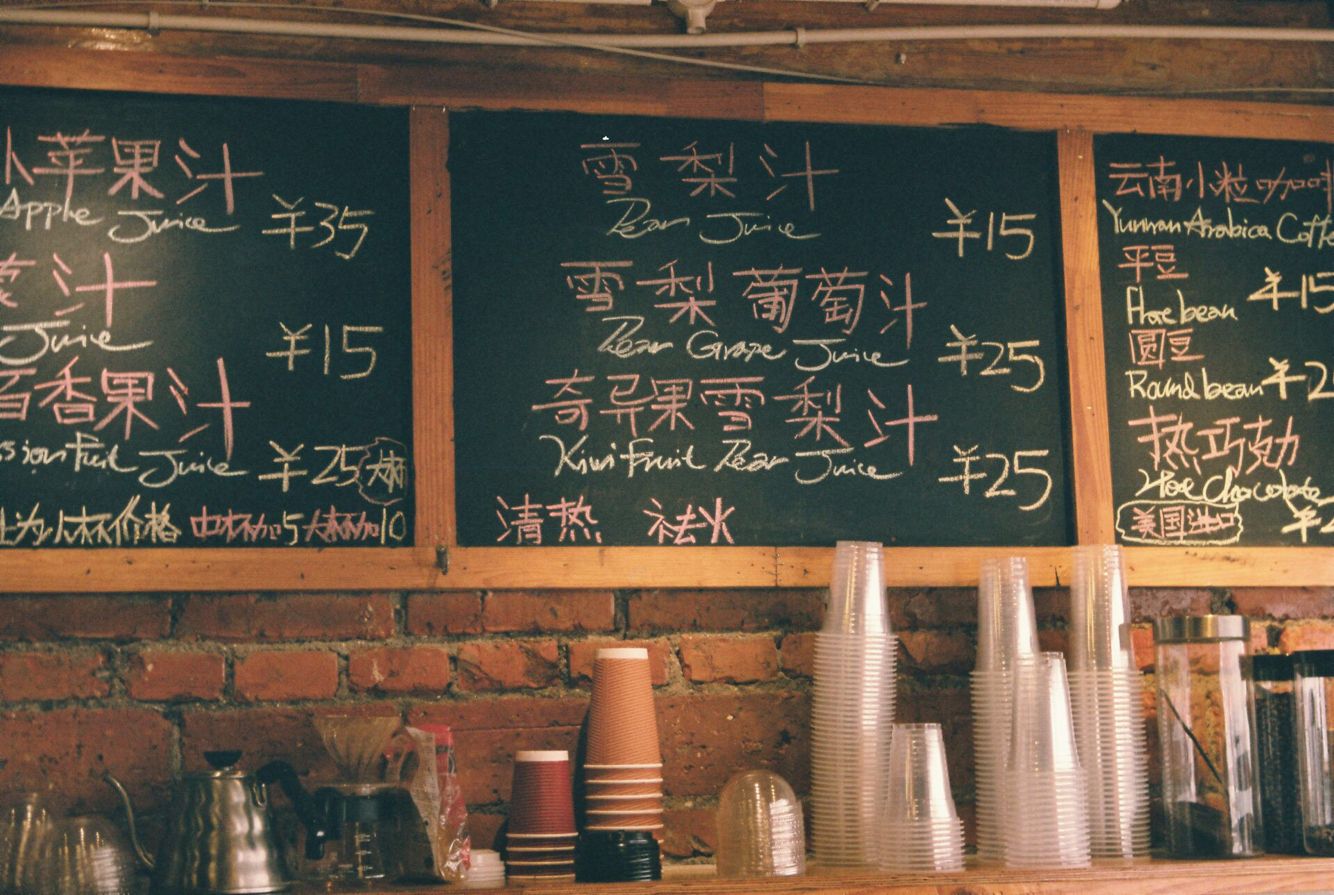 苹果汁
Apple Juice ¥35
汁
Juice ¥15
百香果汁
ssion Fruit Juice ¥25 大杯
上为小杯价格 中杯加5 大杯加10
雪梨汁
Pear Juice ¥15
雪梨葡萄汁
Pear Grape Juice ¥25
奇异果雪梨汁
Kiwi Fruit Pear Juice ¥25
清热 祛火
云南小粒咖啡
Yunnan Arabica Coffe
平豆 ¥15
bean
圆豆
Round bean ¥2
热巧
Hot Chocolate
美国进口 ¥2